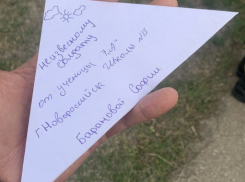 неизвесному
солдату
от ученицы 7 "А"
г. Новороссийск школы №11
Барановой Софии